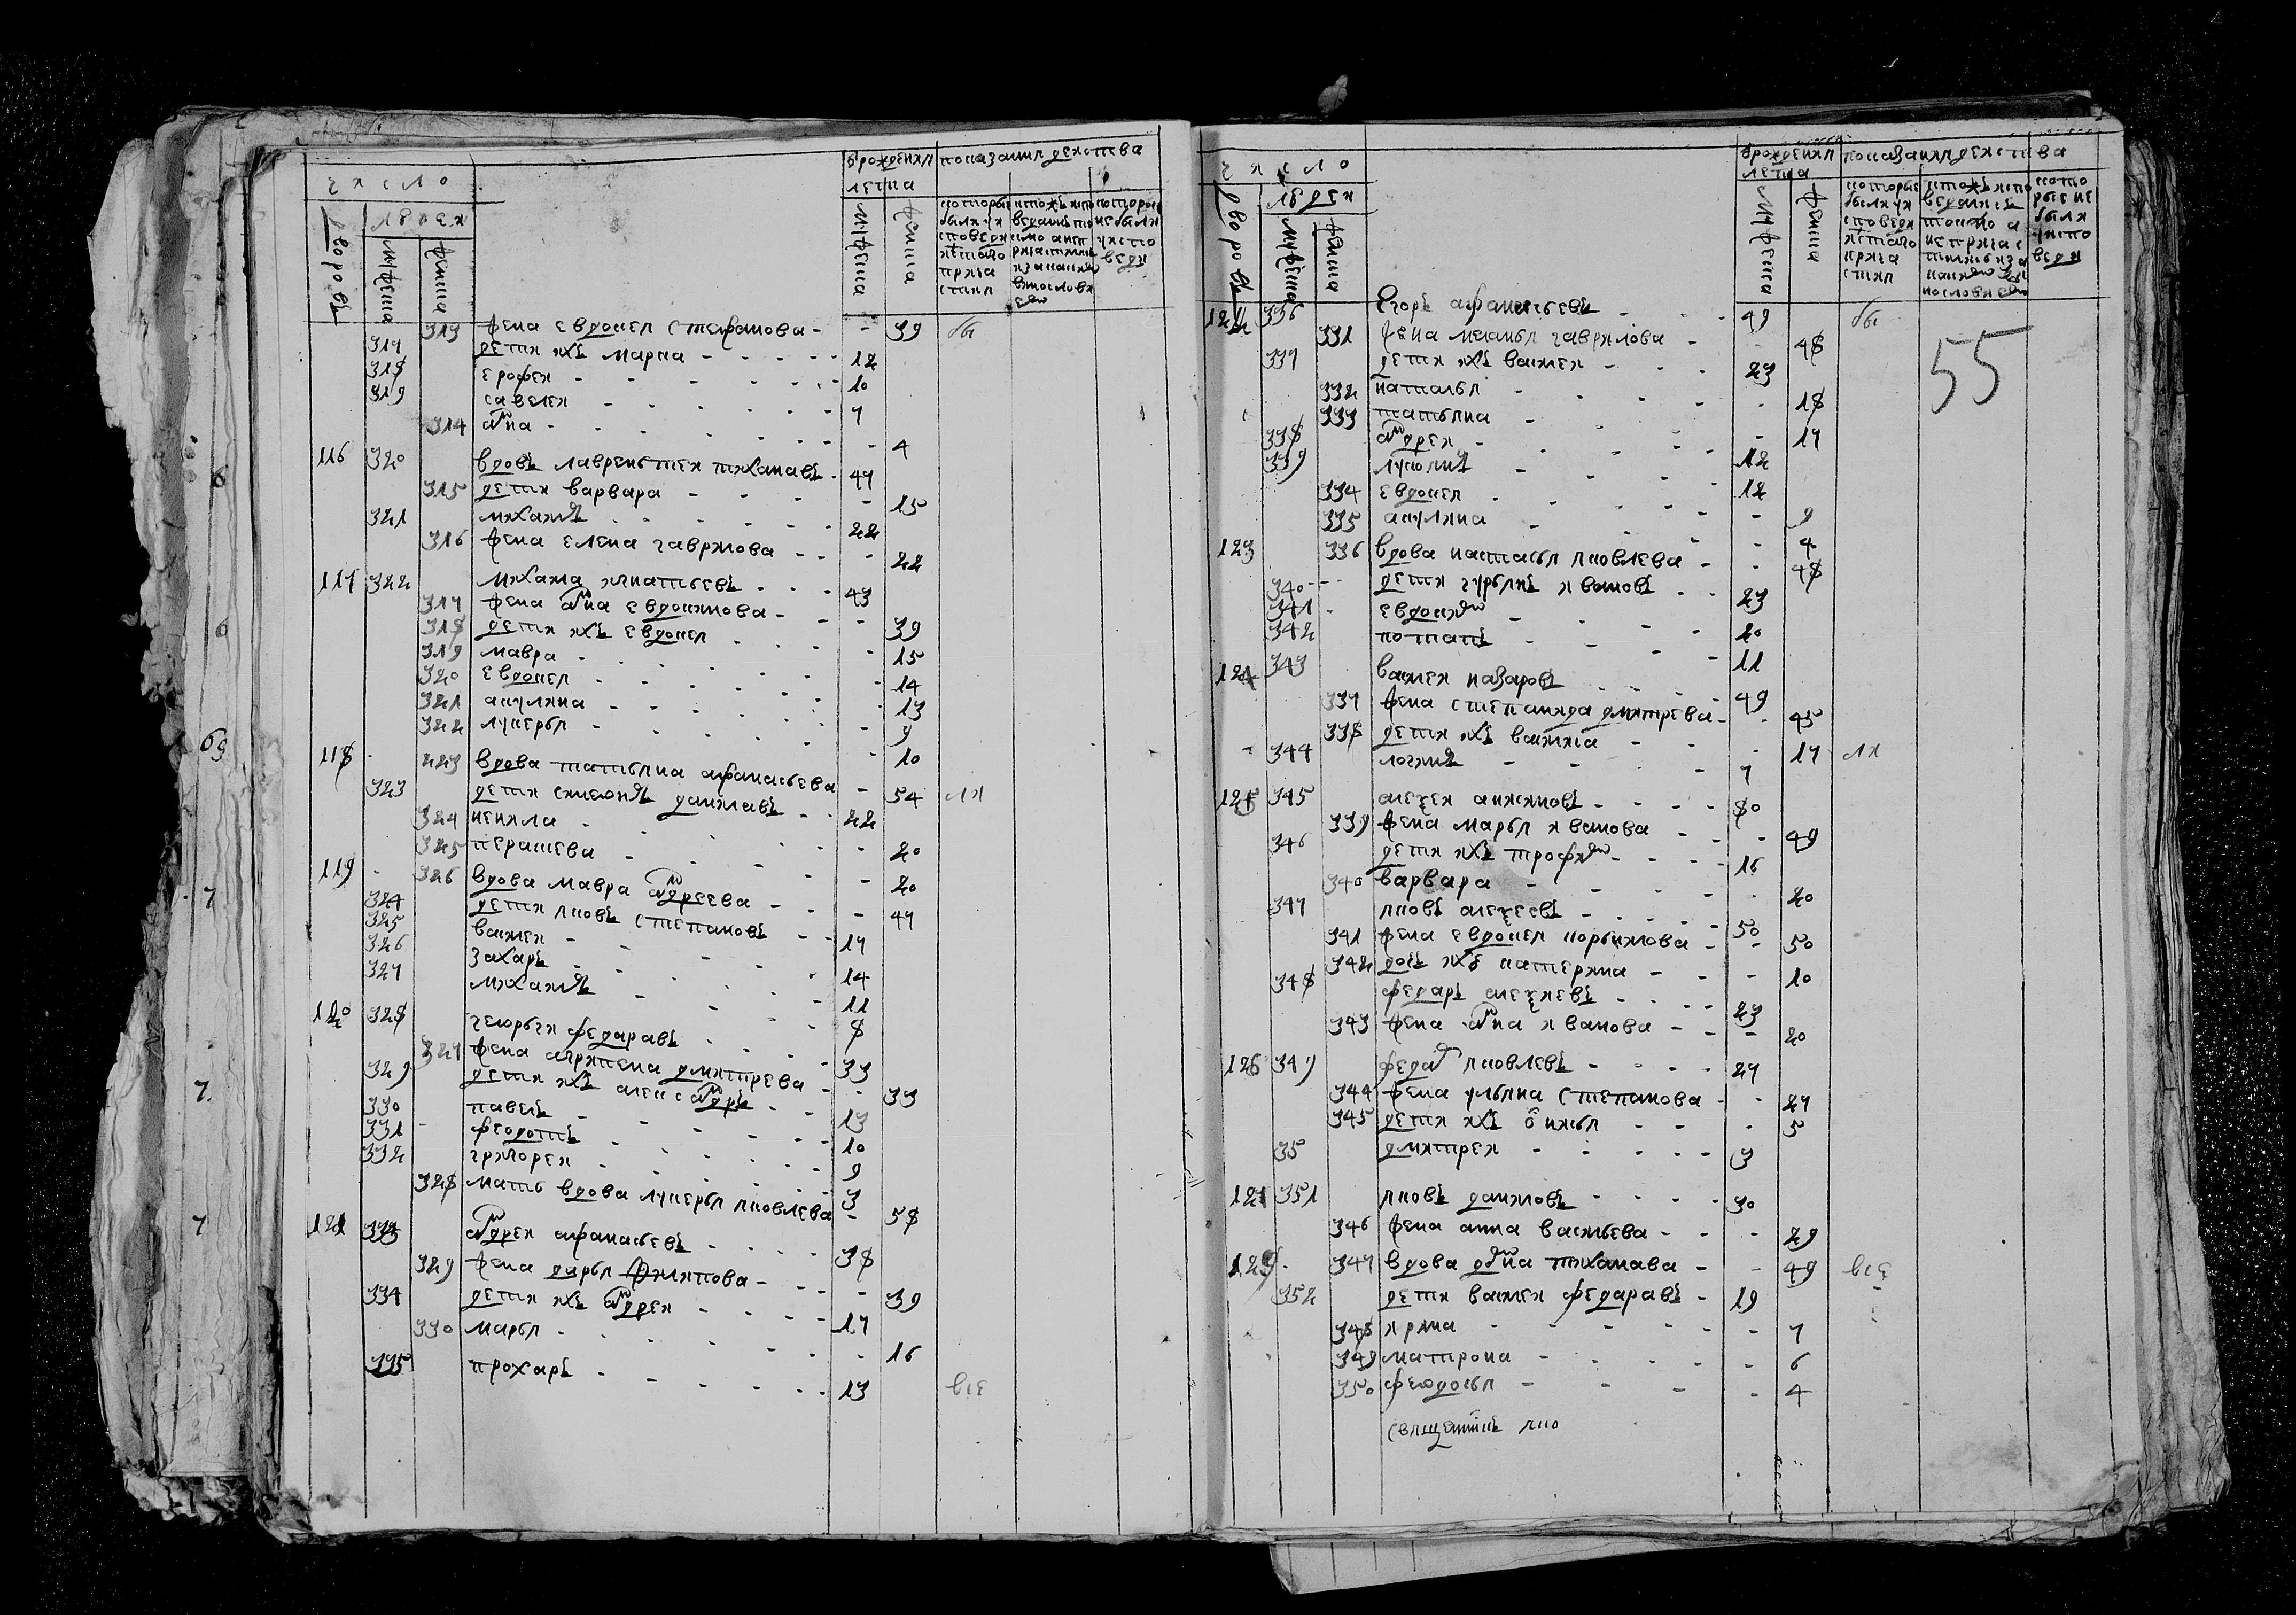 число
людей
дворовъ
мужеска
женска
врождения лета
мужеска
женска
показания действа
которые были у исповеди и святаго причастия
которые исповедались токмо а не причастились и за каким винословием
которые не были у исповеди
313 жена евдокея стефанова - - 39 бы
317 дети ихъ марка - - 12
318 ерофей - - 10
319 савелей - - 7
314 анна - - 4
116 320 вдовъ лаврентей тихановъ - 47
315 дети варвара - - 15
321 михаилъ - - 22
316 жена елена гаврилова - - 22
117 322 михаила игнатьевъ - - 43
317 жена анна евдокимова - - 39
318 дети ихъ евдокея - - 15
319 мавра - - 14
320 евдокея - - 13
321 акулина - - 9
322 лукерья - - 10
118 - 323 вдова татьяна афанасьева - 54 ли
323 дети симеонъ данилавъ - - 22
324 некила - - 20
325 перасцева - - 20
119 - 326 вдова мавра андреева - - 47
324 дети яковъ степановъ - - 17
325 василей - - 14
326 захаръ - - 11
327 михаилъ - - 8
120 328 георьги федаравъ - - 33
327 жена агрипена дмитрева - - 33
329 дети ихъ александръ - - 13
330 павелъ - - 10
331 федотъ - - 9
332 григорей - - 3
328 мать вдова лукерья яковлева - 58
121 333 андрей афанасьевъ - - 38
329 жена дарья филипова - - 39
334 дети ихъ андрей - - 17
330 марья - - 16
335 прохаръ - - 13 все
число
людей
дворовъ
мужеска
женска
врождения лета
мужеска
женска
показания действа
которые были у исповеди и святаго причастия
которые исповедались токмо а не причастились и за каким винословием
которые не были у исповеди
55
122 336 Егоръ афанасьевъ - - 49 бы
331 жена макаья гаврилова - - 48
337 дети ихъ василей - - 23
332 наталья - - 18
333 татьяна - - 17
338 андрей - - 12
339 лукоянъ - - 12
334 евдокея - - 9
335 акулина - - 4
123 336 вдова настасья яковлева - - 48
340 - - дети гурьянъ ивановъ - - 23
341 - евдоким - - 20
342 потапъ - - 11
124 343 василей назаровъ - - 49
337 жена степанида дмитрева - - 45
338 дети ихъ василиса - - 17 ли
344 логинъ - - 7
125 345 алексей анисимовъ - - 80
339 жена марья иванова - - 49
346 дети ихъ трофим - - 16
340 варвара - - 20
347 яковъ алексеевъ - - 50
341 жена евдокея корьнилова - - 50
342 дочь ихъ катерина - - 10
348 федаръ алексиевъ - - 23
343 жена анна иванова - - 20
126 349 федар яковлевъ - - 27
344 жена ульяна степанова - - 27
345 дети ихъ - - 5
35 дмитрей - - 3
127 351 яковъ даниловъ - - 30
346 жена анна васильева - - 29
128 - 347 вдова тиханава - - 49 все
352 дети василей федаравъ - 19
348 ирина - - 7
349 матрона - - 6
350 феодосья - - 4
священникъ яко